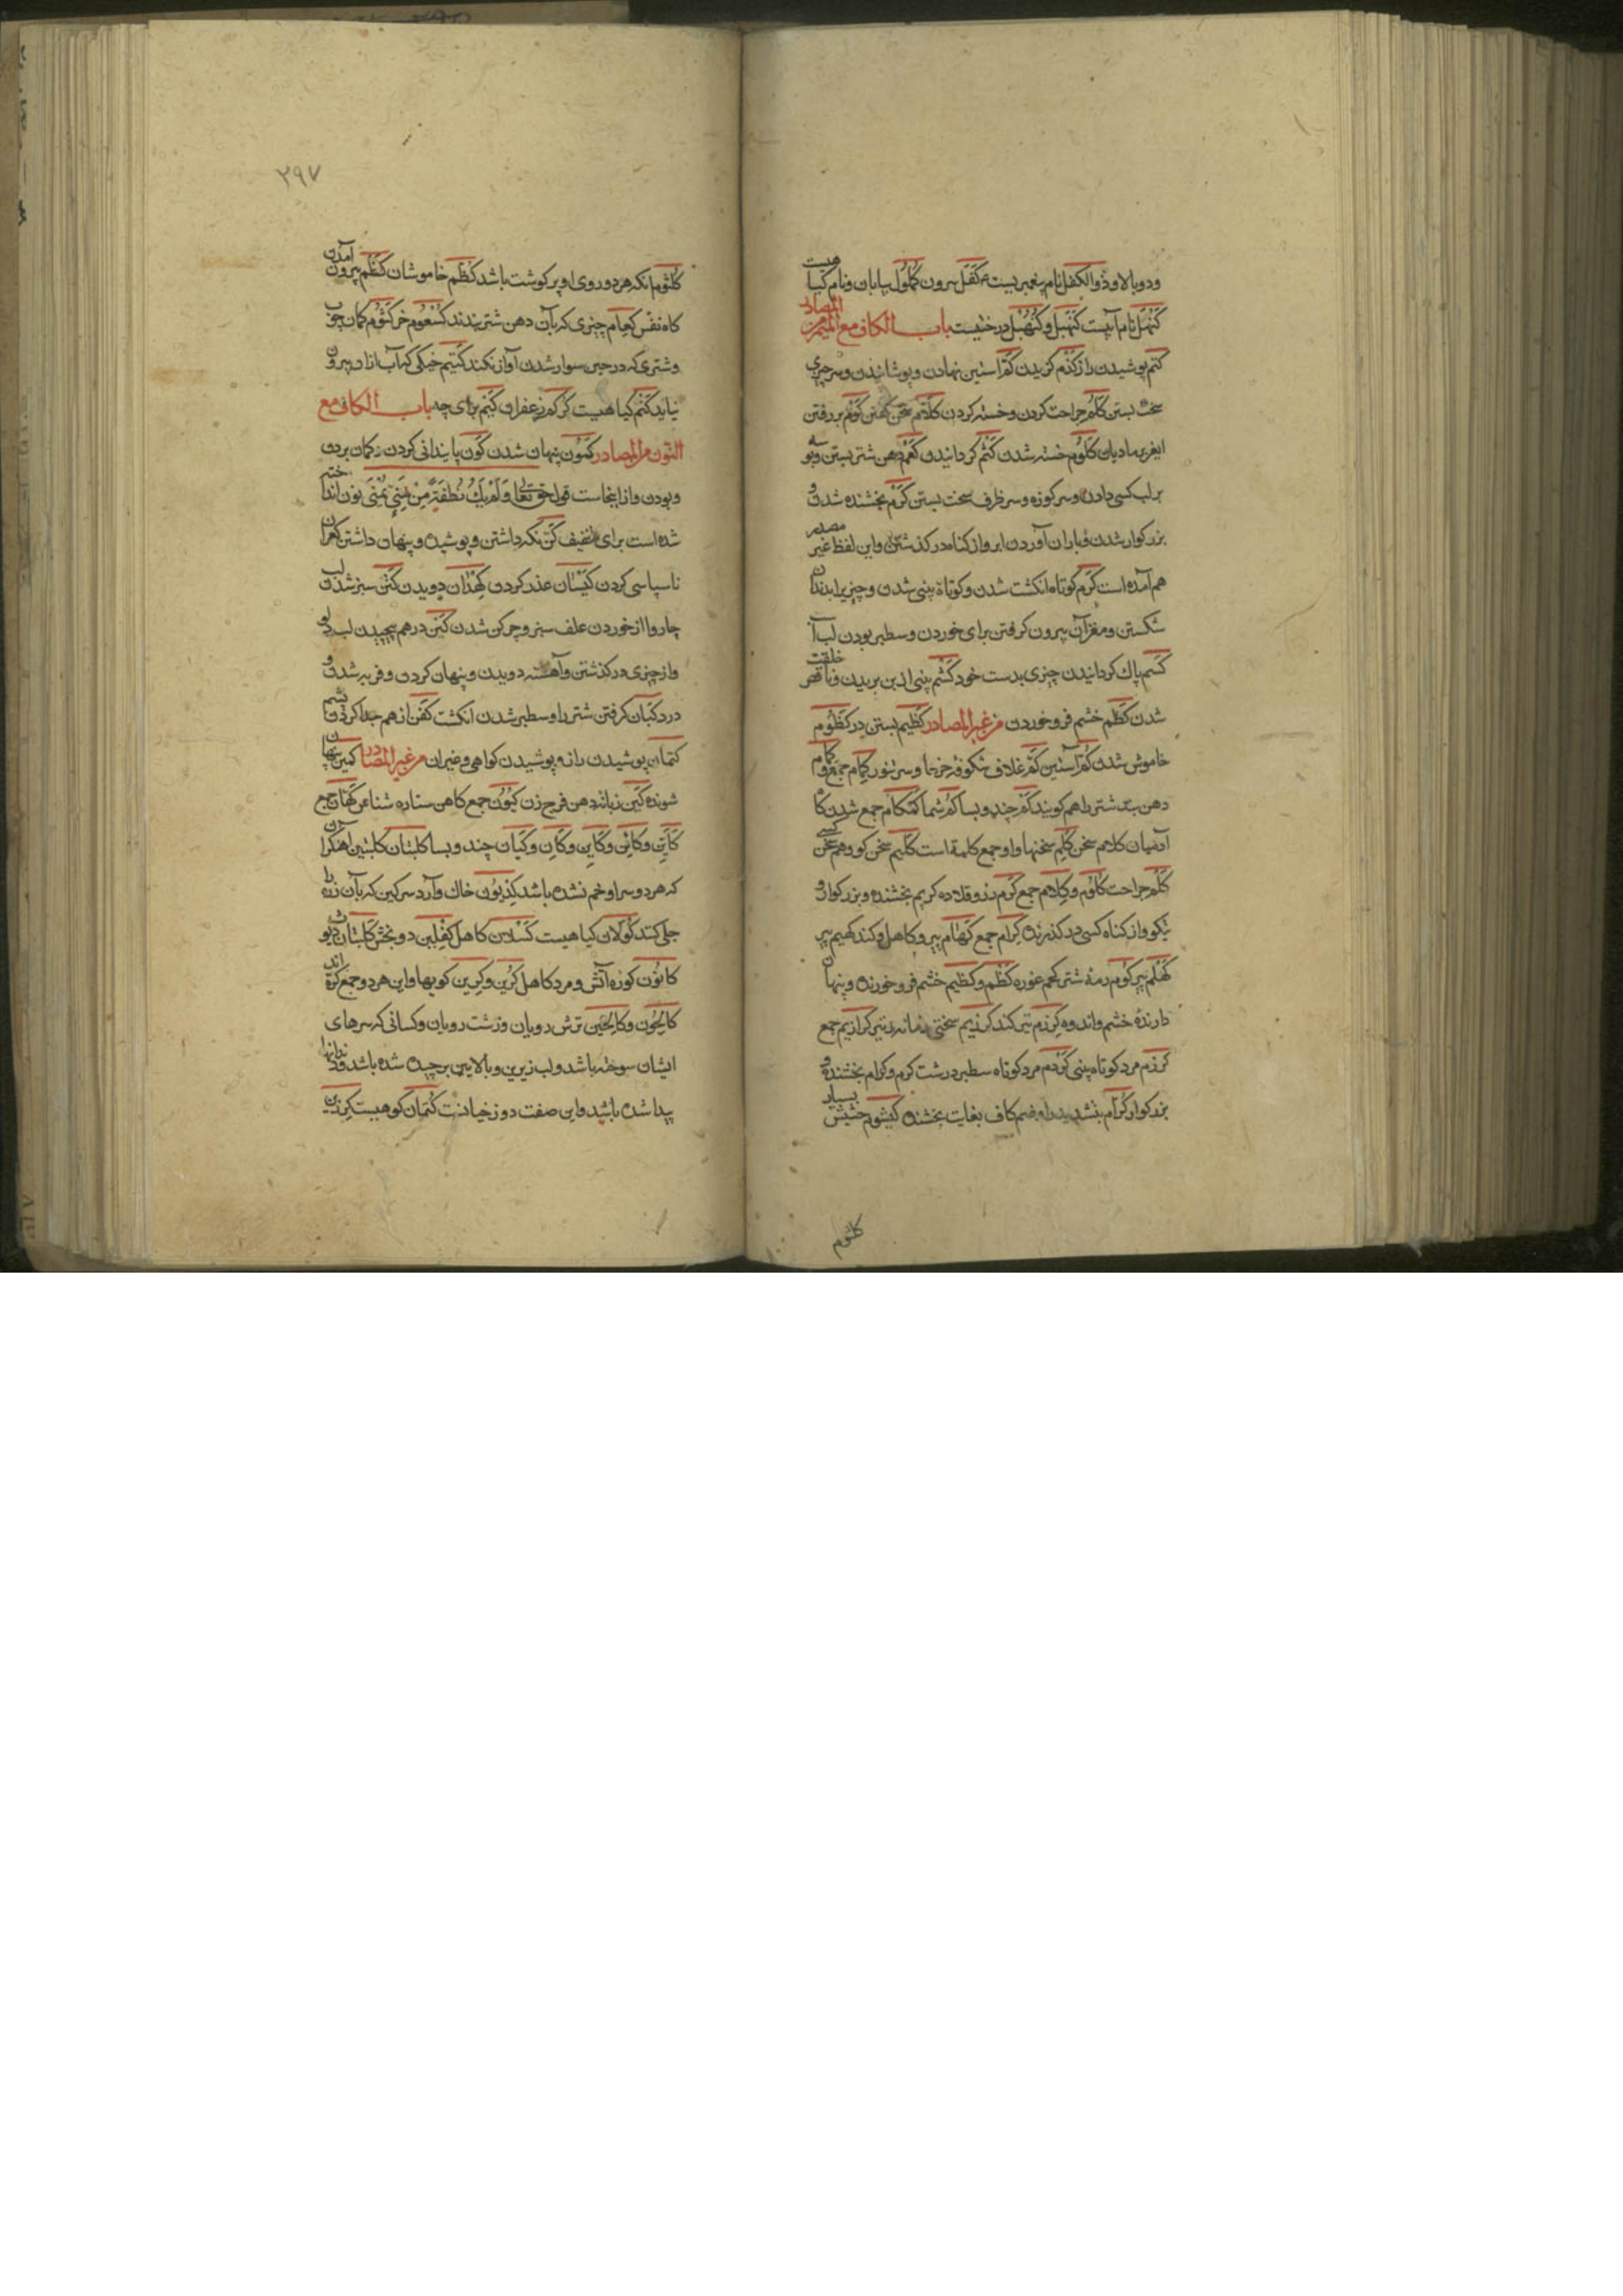 ودوبالا وذوالکفل نام پیغمبریست کفل سرون کلول بیابان ونام کیاهیست
کنهل نام آبیست کنهبل وکنهبل درختیست باب الکاف مع المیم من المصادر
کتم پوشیدن راز کدم کزیدن کم آستین نهادن وپوشانیدن وسر چیزی
سخت بستن کلم جراحت کردن وخسته کردن کلام سخن کفتن کوم بر رفتن
مادیان کلوم خسته شدن کثم کردانیدن کعم دهن شتر بستن وبوسه
بر لب کسی دادن وسر کوزه وسر ظرف سخت بستن کرم بخشنده شدن و
بزرکوار شدن وباران آوردن ابر واز کناه در کذشتن واین لفظ غیر مصدر
هم آمده است کزم کوتاه انکشت شدن وکوتاه بینی شدن وچیزیرا بدندان
شکستن ومغز آن بیرون کرفتن برای خوردن وسطبر بودن لب
کسم پاک کردانیدن چیزی بدست خود کشم بینی از بن بریدن وناقص خلقت
شدن کظم خشم فرو خوردن من غیر المصادر کظیم بستن در کظوم
خاموش شدن کم آستین کم غلاف شکوفه خرما وسر تنور کمام جمع
دهن بند شتر را هم کویند کم چند وبسا کم شما کمکام جمع شدن کاه
آدمیان کلام سخن کلم سخنها واو جمع کلمة است کلیم سخن کو وهم سخن کسی
کلم جراحت کلوم وکلام جمع کرم رز وقلاده کریم بخشنده وبزرکوار و
نیکو واز کناه کسی در کذرنده کرام جمع کهام پیر وکاهل وکند کهیم پیر
کهلم پیر کوم رمۀ شتر کحم غوره کظم وکظیم خشم فرو خورنده وپنهان
دارندۀ خشم واندوه کرزم تبر کند کرزیم سختی زمانه وتبر کرازیم جمع
کرزم مرد کوتاه بینی کردم مرد کوتاه سطبر درشت کرم وکرام بخشنده و
بزرکوار کرام بتشدید را وضم کاف بغایت بخشنده کیشوم حشیش بسیار
کلثوم
۲۹۷
کلثوم آنکه هر دو روی او پر کوشت باشد کظم خاموشان کظم بیرون آمدن
کاه نفس کعام چیزی که بآن دهن شتر بندند کسعوم خر کتوم کمان چوب
وشتری که در حین سوار شدن آواز نکند کتیم خیکی که آب ازان بیرون
نیاید کتم کیاهیست کرکم زعفران کیم برای چه باب الکاف مع
النون من المصادر کمون پنهان شدن کون پایندانی کردن کمان بردن
وبودن وازاینجاست قول حق تعالی ولم یک نطفة من منی یمنی نون انداخته
شده است برای تخفیف کن نکه داشتن وپوشیده وپنهان داشتن کفران
ناسپاسی کردن کیسان عذر کردن کهذان دویدن کتن سبز شدن لب
چاروا از خوردن علف سبز وچرکن شدن کبن درهم پیچیدن لب دلو
واز چیزی در کذشتن وآهسته دویدن وپنهان کردن وفربه شدن و
درد کبان کرفتن شتر را وسطبر شدن انکشت کفن از هم جدا کردن پشم
کتمان پوشیدن راز وپوشیدن کواهی وغیر ان من غیر المصادر کمین پنهان
شونده کین زبانۀ دهن فرج زن کیون جمع کاهن ستاره شناس کهان جمع
کاین وکائن وکاین وکان وکیان چند وبسا کلبتان کلبتین آهنکران
که هر دو سر او خم نشده باشد کدیون خاک وآرد سرکین که بآن زره را
جلی کنند کولان کیاهیست کسلان کاهل کفلین دو بخش
کانون کوره آتش ومرد کاهل کرین وکرین کویها واین هر دو جمع کره اند
کالحون وکالحین ترش رویان وزشت رویان وکسانی که سرهای
ایشان سوخته باشد ولب زیرین وبالایین برچیده شده باشد ودندانها
پیدا شده باشد واین صفت دوزخیانست کتمان کوهیست کرزن